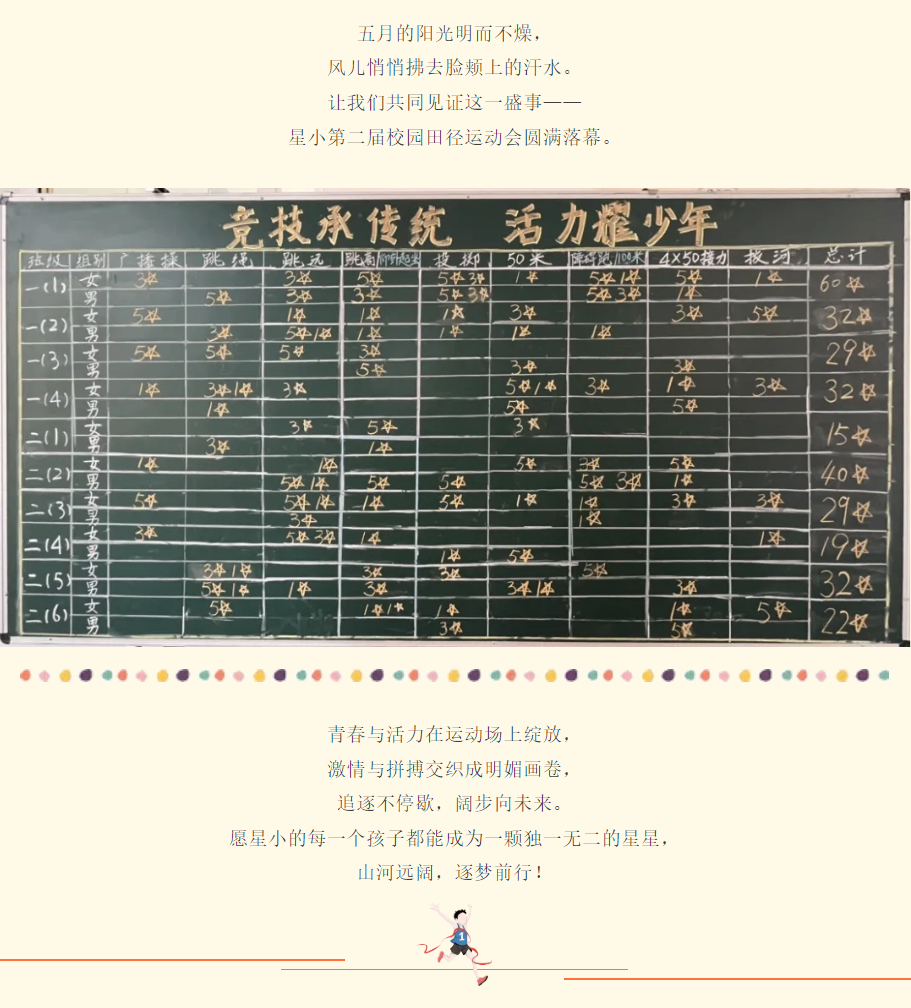 五月的阳光明而不燥，
风儿悄悄拂去脸颊上的汗水。
让我们共同见证这一盛事——
星小第二届校园田径运动会圆满落幕。
竞技承传统 活力耀少年
班级 组别 广播操 跳绳 跳远 跳高/仰卧起坐 投掷 50米 障碍跑/100米 4×50接力 拔河 总计
一(1) 女 3☆ 3☆ 5☆ 5☆3☆ 1☆ 5☆1☆ 5☆ 1☆ 60☆
男 5☆ 3☆ 3☆ 5☆3☆ 5☆3☆ 1☆
一(2) 女 5☆ 1☆ 1☆ 1☆ 3☆ 3☆ 5☆ 32☆
男 3☆ 5☆1☆ 1☆ 1☆ 1☆ 1☆
一(3) 女 5☆ 5☆ 5☆ 3☆ 29☆
男 5☆ 3☆ 3☆
一(4) 女 1☆ 3☆1☆ 3☆ 5☆1☆ 3☆ 1☆ 3☆ 32☆
男 1☆ 5☆ 5☆
二(1) 女 3☆ 5☆ 3☆ 15☆
男 3☆ 1☆
二(2) 女 1☆ 1☆ 5☆ 3☆ 5☆ 40☆
男 5☆1☆ 5☆ 5☆ 5☆ 3☆ 1☆
二(3) 女 5☆ 5☆1☆ 1☆ 5☆ 1☆ 1☆ 3☆ 3☆ 29☆
男 3☆ 1☆
二(4) 女 3☆ 5☆3☆ 1☆ 1☆ 19☆
男 1☆ 5☆
二(5) 女 3☆1☆ 3☆ 3☆ 5☆ 32☆
男 5☆1☆ 1☆ 3☆ 3☆1☆ 3☆
二(6) 女 5☆ 1☆1☆ 1☆ 1☆ 5☆ 22☆
男 3☆ 5☆
青春与活力在运动场上绽放，
激情与拼搏交织成明媚画卷，
追逐不停歇，阔步向未来。
愿星小的每一个孩子都能成为一颗独一无二的星星，
山河远阔，逐梦前行！
1